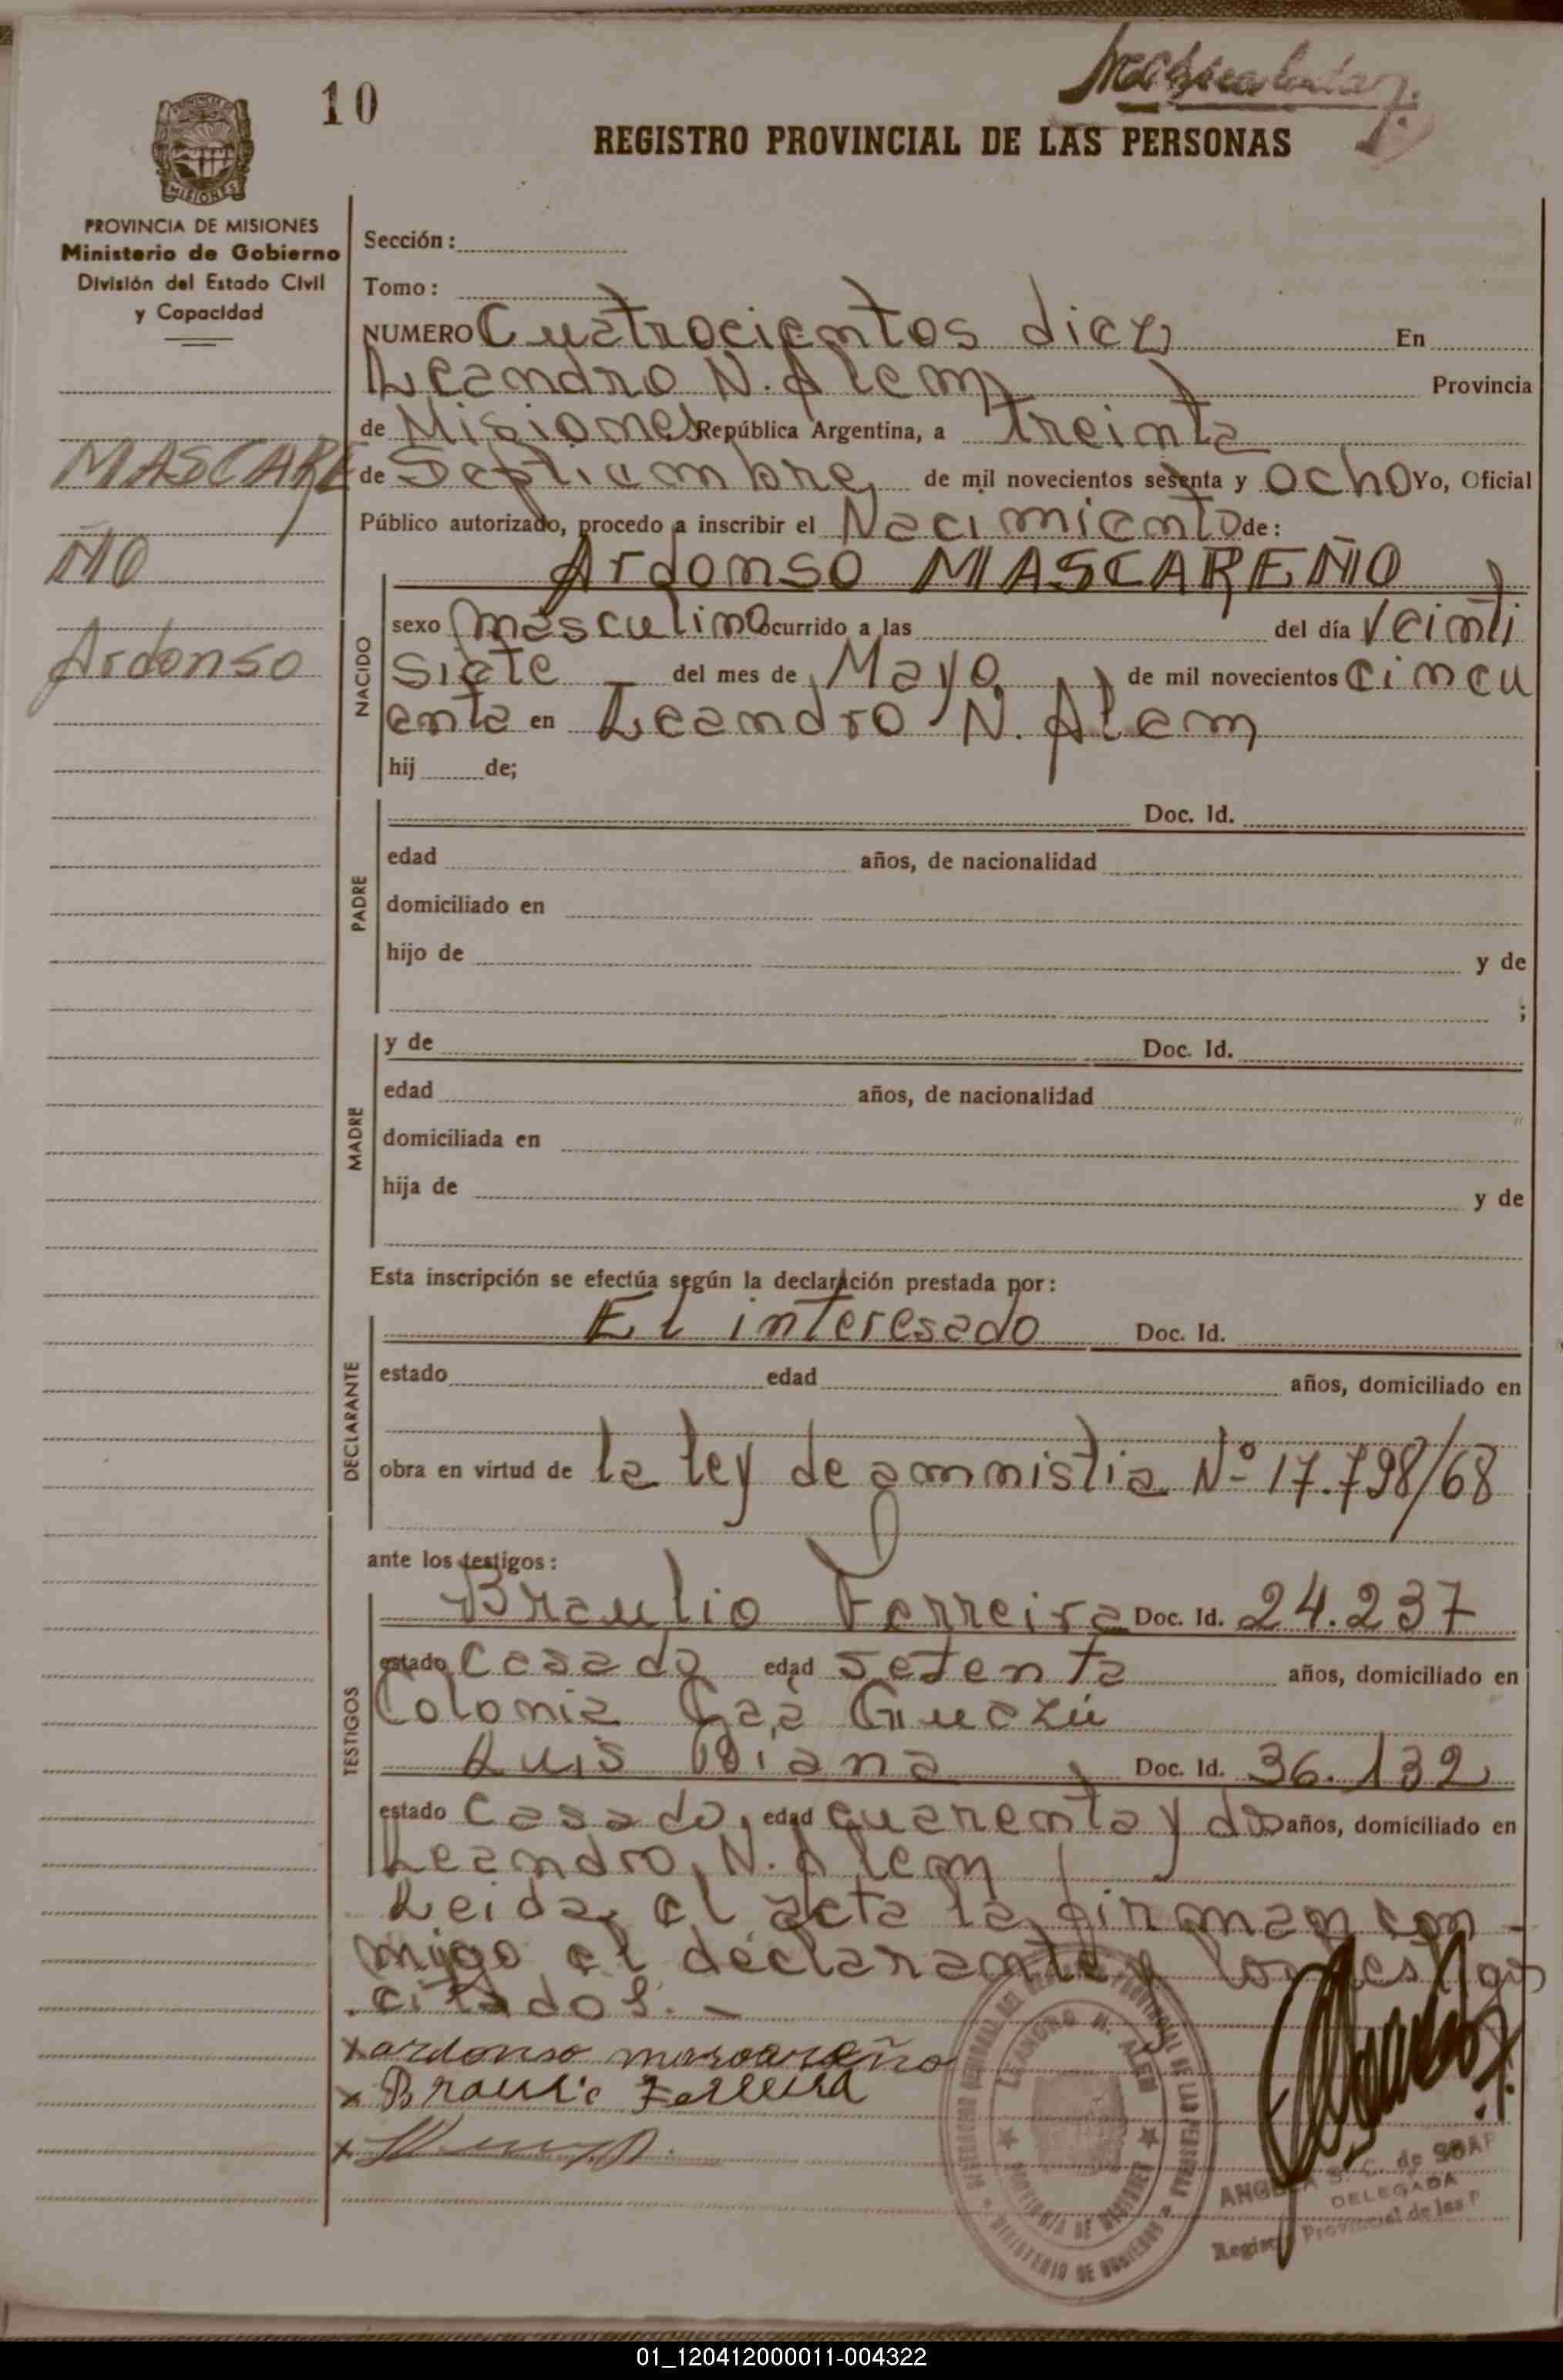 10
REGISTRO PROVINCIAL DE LAS PERSONAS
MISIONES
PROVINCIA DE MISIONES
Ministerio de Gobierno
División del Estado Civil
y Capacidad
MASCARE
ÑO
Ardonso
Sección:
Tomo:
NUMERO Cuatrocientos diez En
Leandro N. Alem Provincia
de Misiones República Argentina, a treinta
de Septiembre de mil novecientos sesenta y ocho Yo, Oficial
Público autorizado, procedo a inscribir el Nacimiento de:
Ardonso MASCAREÑO
NACIDO
sexo masculino ocurrido a las del día veinti
siete del mes de Mayo de mil novecientos cincu
enta en Leandro N. Alem
hij de;
PADRE
Doc. Id.
edad años, de nacionalidad
domiciliado en
hijo de y de
;
MADRE
y de Doc. Id.
edad años, de nacionalidad
domiciliada en
hija de y de
Esta inscripción se efectúa según la declaración prestada por:
DECLARANTE
El interesado Doc. Id.
estado edad años, domiciliado en
obra en virtud de la ley de amnistia Nº 17.798/68
ante los testigos:
TESTIGOS
Braulio Ferreira Doc. Id. 24.237
estado casado edad setenta años, domiciliado en
Colonia Caá Guazú
Luis Viana Doc. Id. 36.132
estado casado, edad cuarenta y dos años, domiciliado en
Leandro N. Alem
Leida el acta la firman con
migo el declarante y los testigos
citados.-
x ardonso mascareño
x Braulio Ferreira
x
LEANDRO N. ALEM
PROVINCIA DE MISIONES
MINISTERIO DE GOBIERNO
DELEGADA
Provincial de las P
01_120412000011-004322